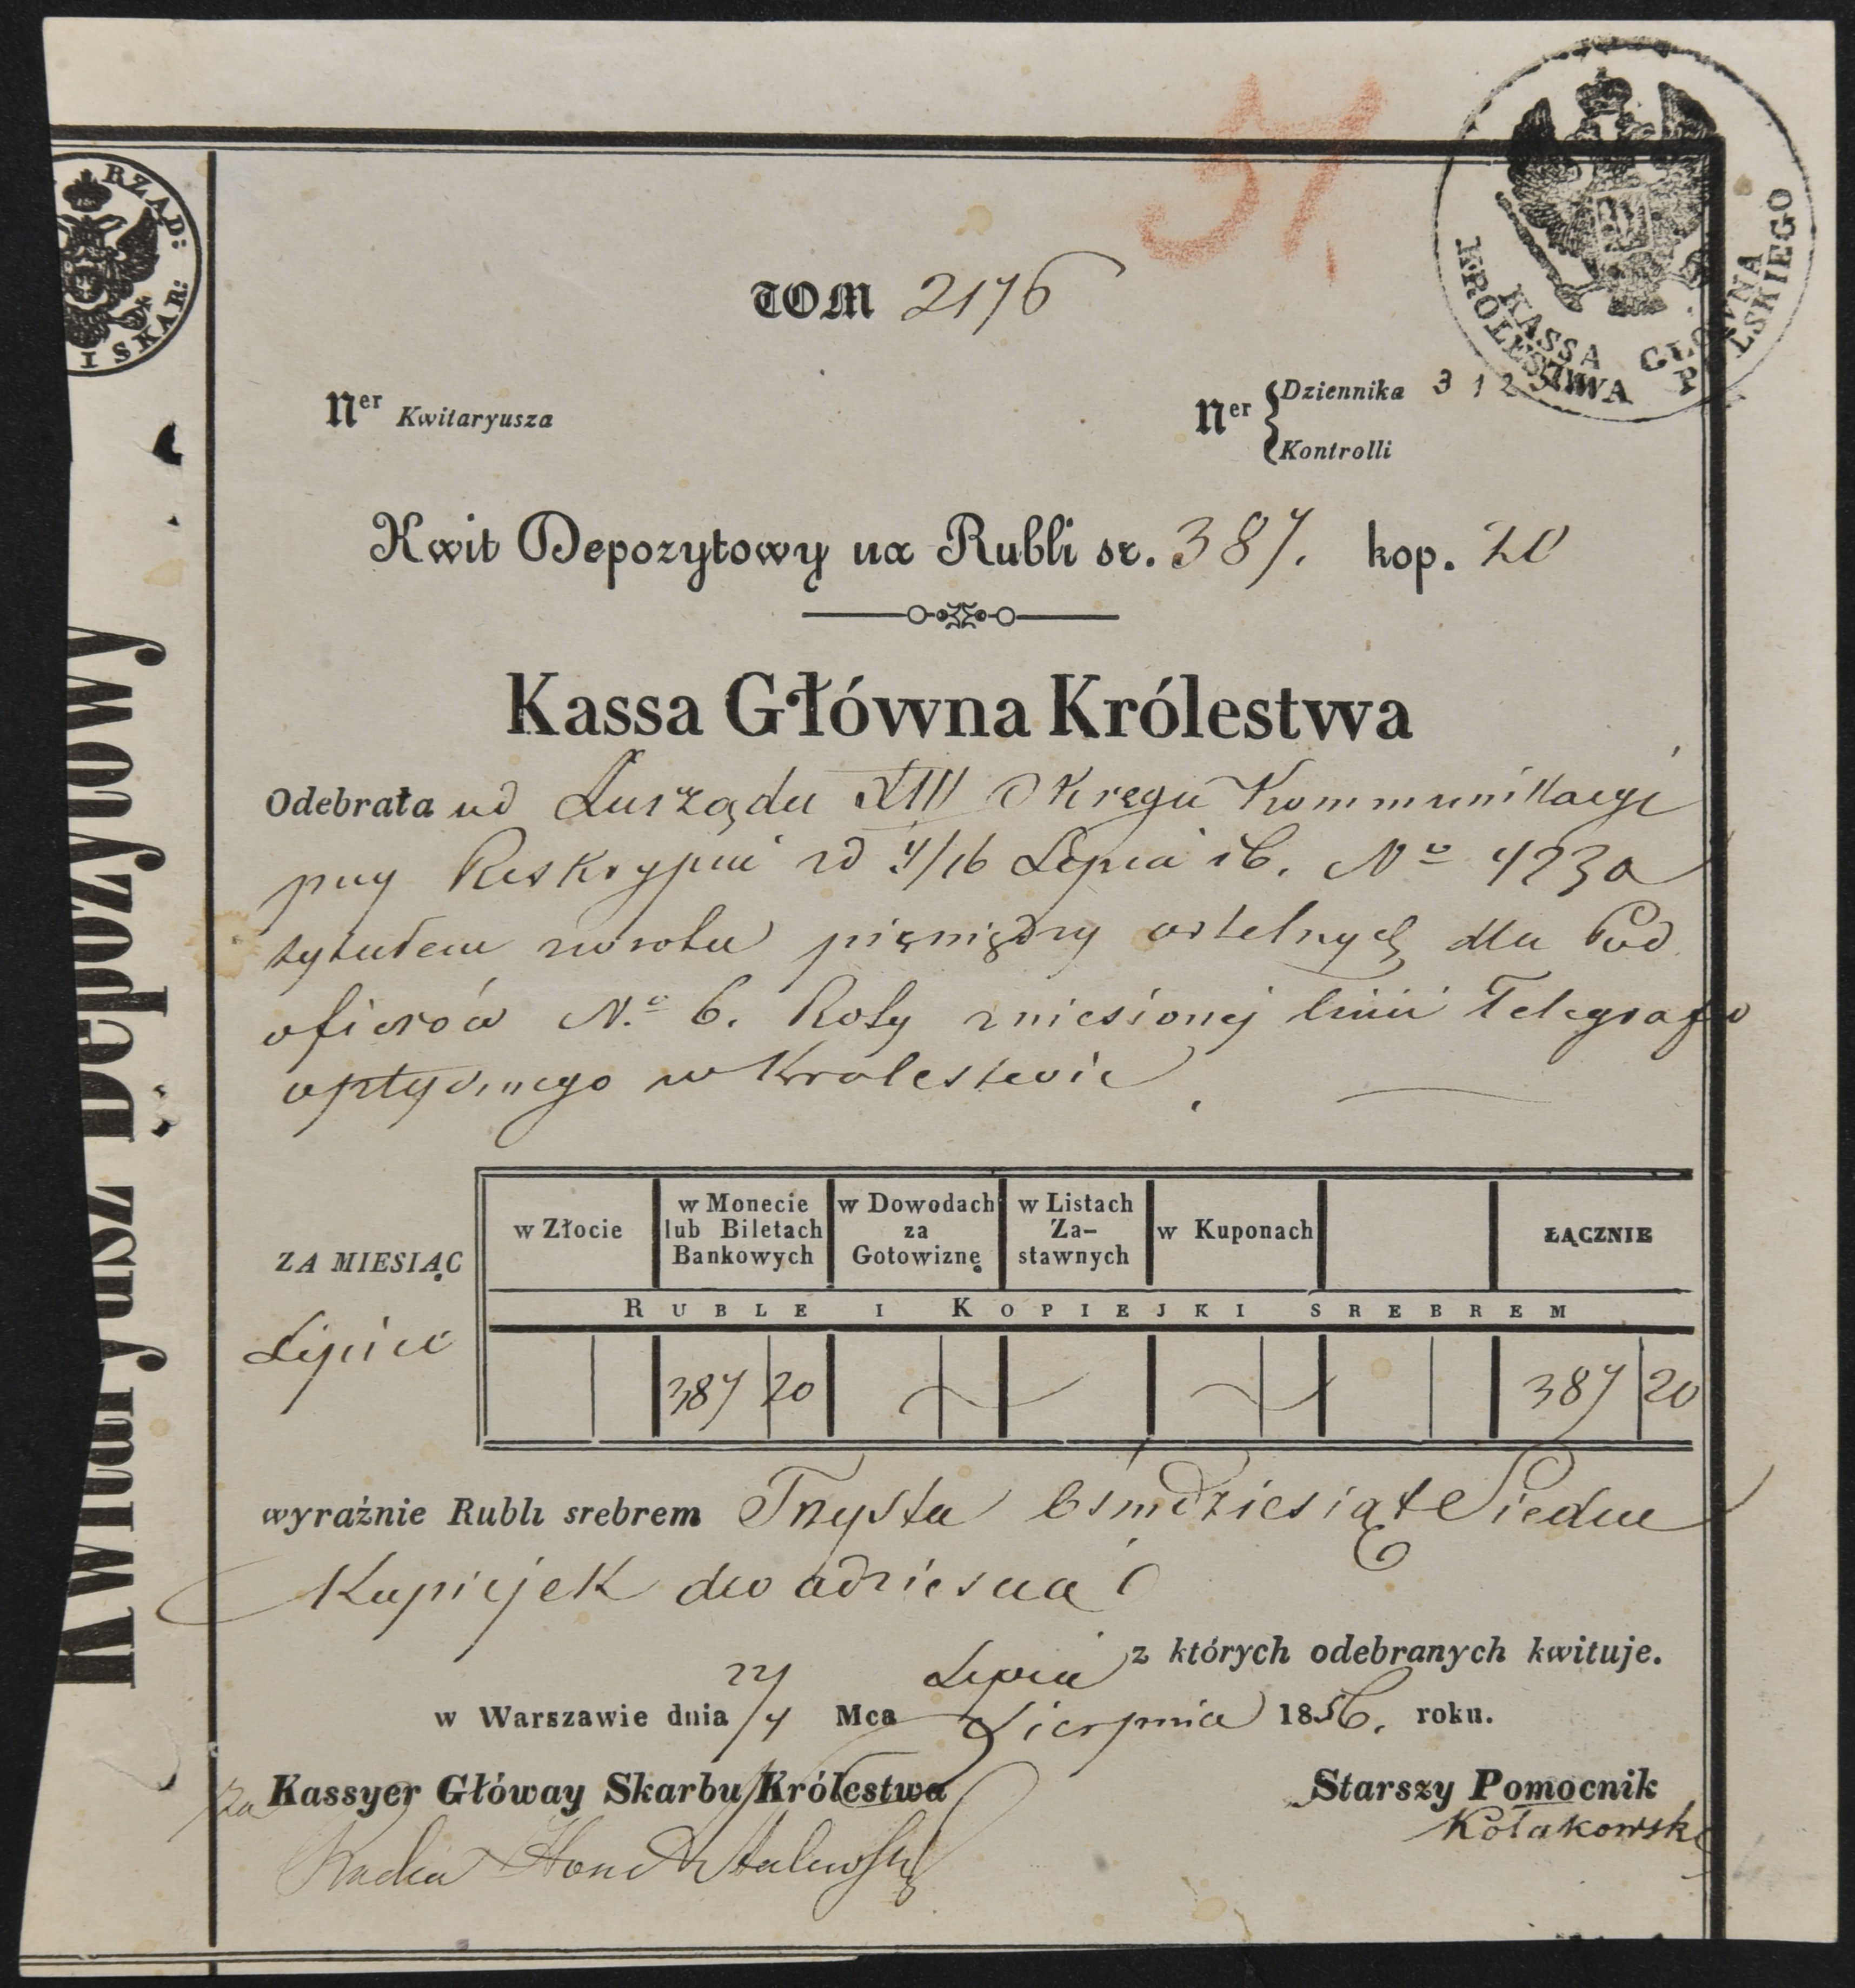 57
RZĄD:
I SKAR:
KASSA GŁÓWNA
KRÓLESTWA POLSKIEGO
TOM 2176
Ner Kwitaryusza
Ner Dziennika 312
Kontrolli
Kwit Depozytowy na Rubli sr. 387. kop. 20
Kassa Główna Królestwa
Odebrała od Zarządu XIII Okręgu Kommunikacyi
przy Reskrypcie od 4/16 Lipca rb. No 4230
tytułem zwrotu pieniędzy artelnych dla Pod
oficerów No 6. Roty zniesionej linii Telegrafo
optycznego w Krolestwie.
ZA MIESIĄC
Lipiec
w Złocie
w Monecie lub Biletach Bankowych
w Dowodach za Gotowiznę
w Listach Za-stawnych
w Kuponach
ŁĄCZNIE
RUBLE I KOPIEJKI SREBREM
387 20
387 20
wyraźnie Rubli srebrem Trzysta Ośmdziesiąt Siedm
Kopiejek dwadzieścia
z których odebranych kwituje.
w Warszawie dnia Mca Lipca
Sierpnia 1856. roku.
Kassyer Główay Skarbu Królestwa
Starszy Pomocnik
za
Radca Hono
Kołakowski
Kwitaryusz Depozytowy